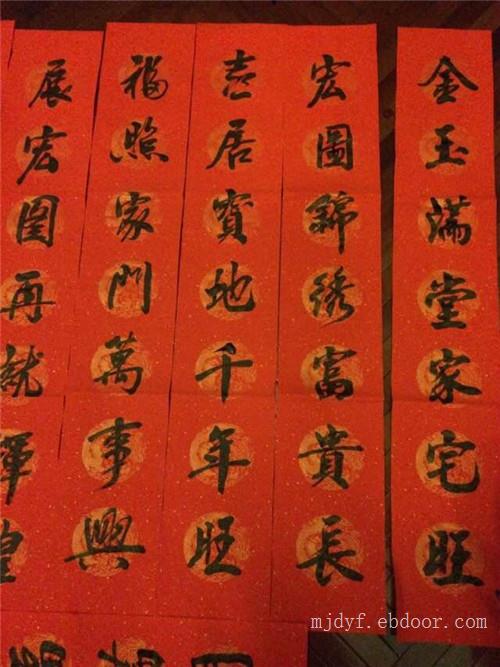 金玉满堂家宅旺
宏圖錦绣富貴長
吉居寳地千年旺
福照家門萬事興
展宏图再就輝皇
mjdyf.ebdoor.com